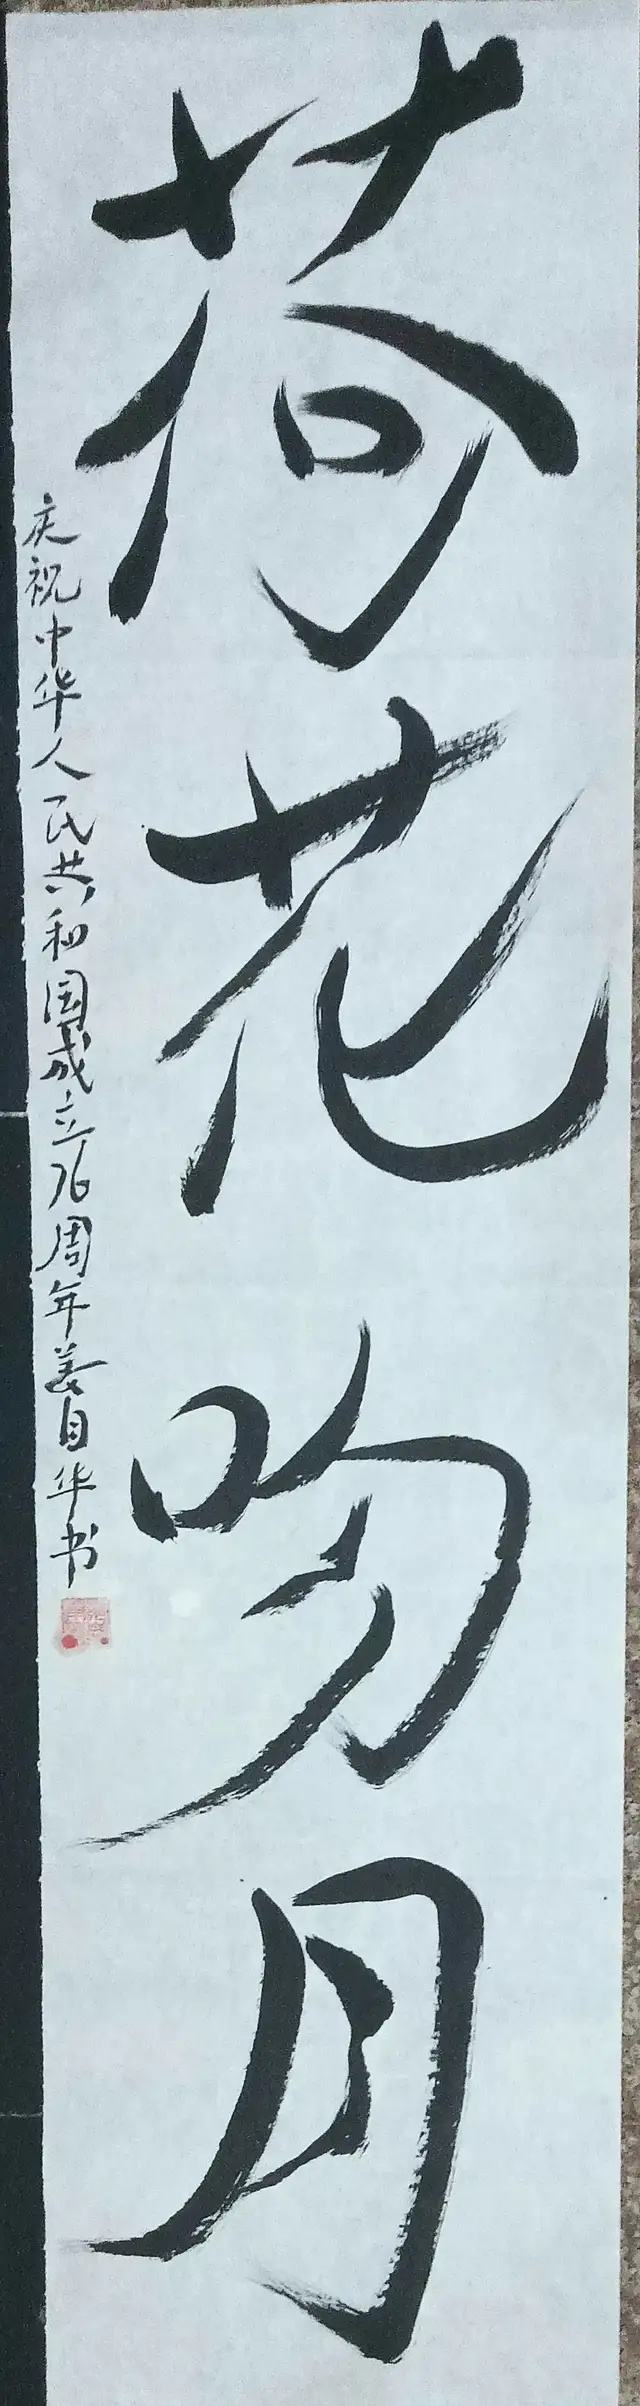 荷花吻月
庆祝中华人民共和国成立76周年姜自华书